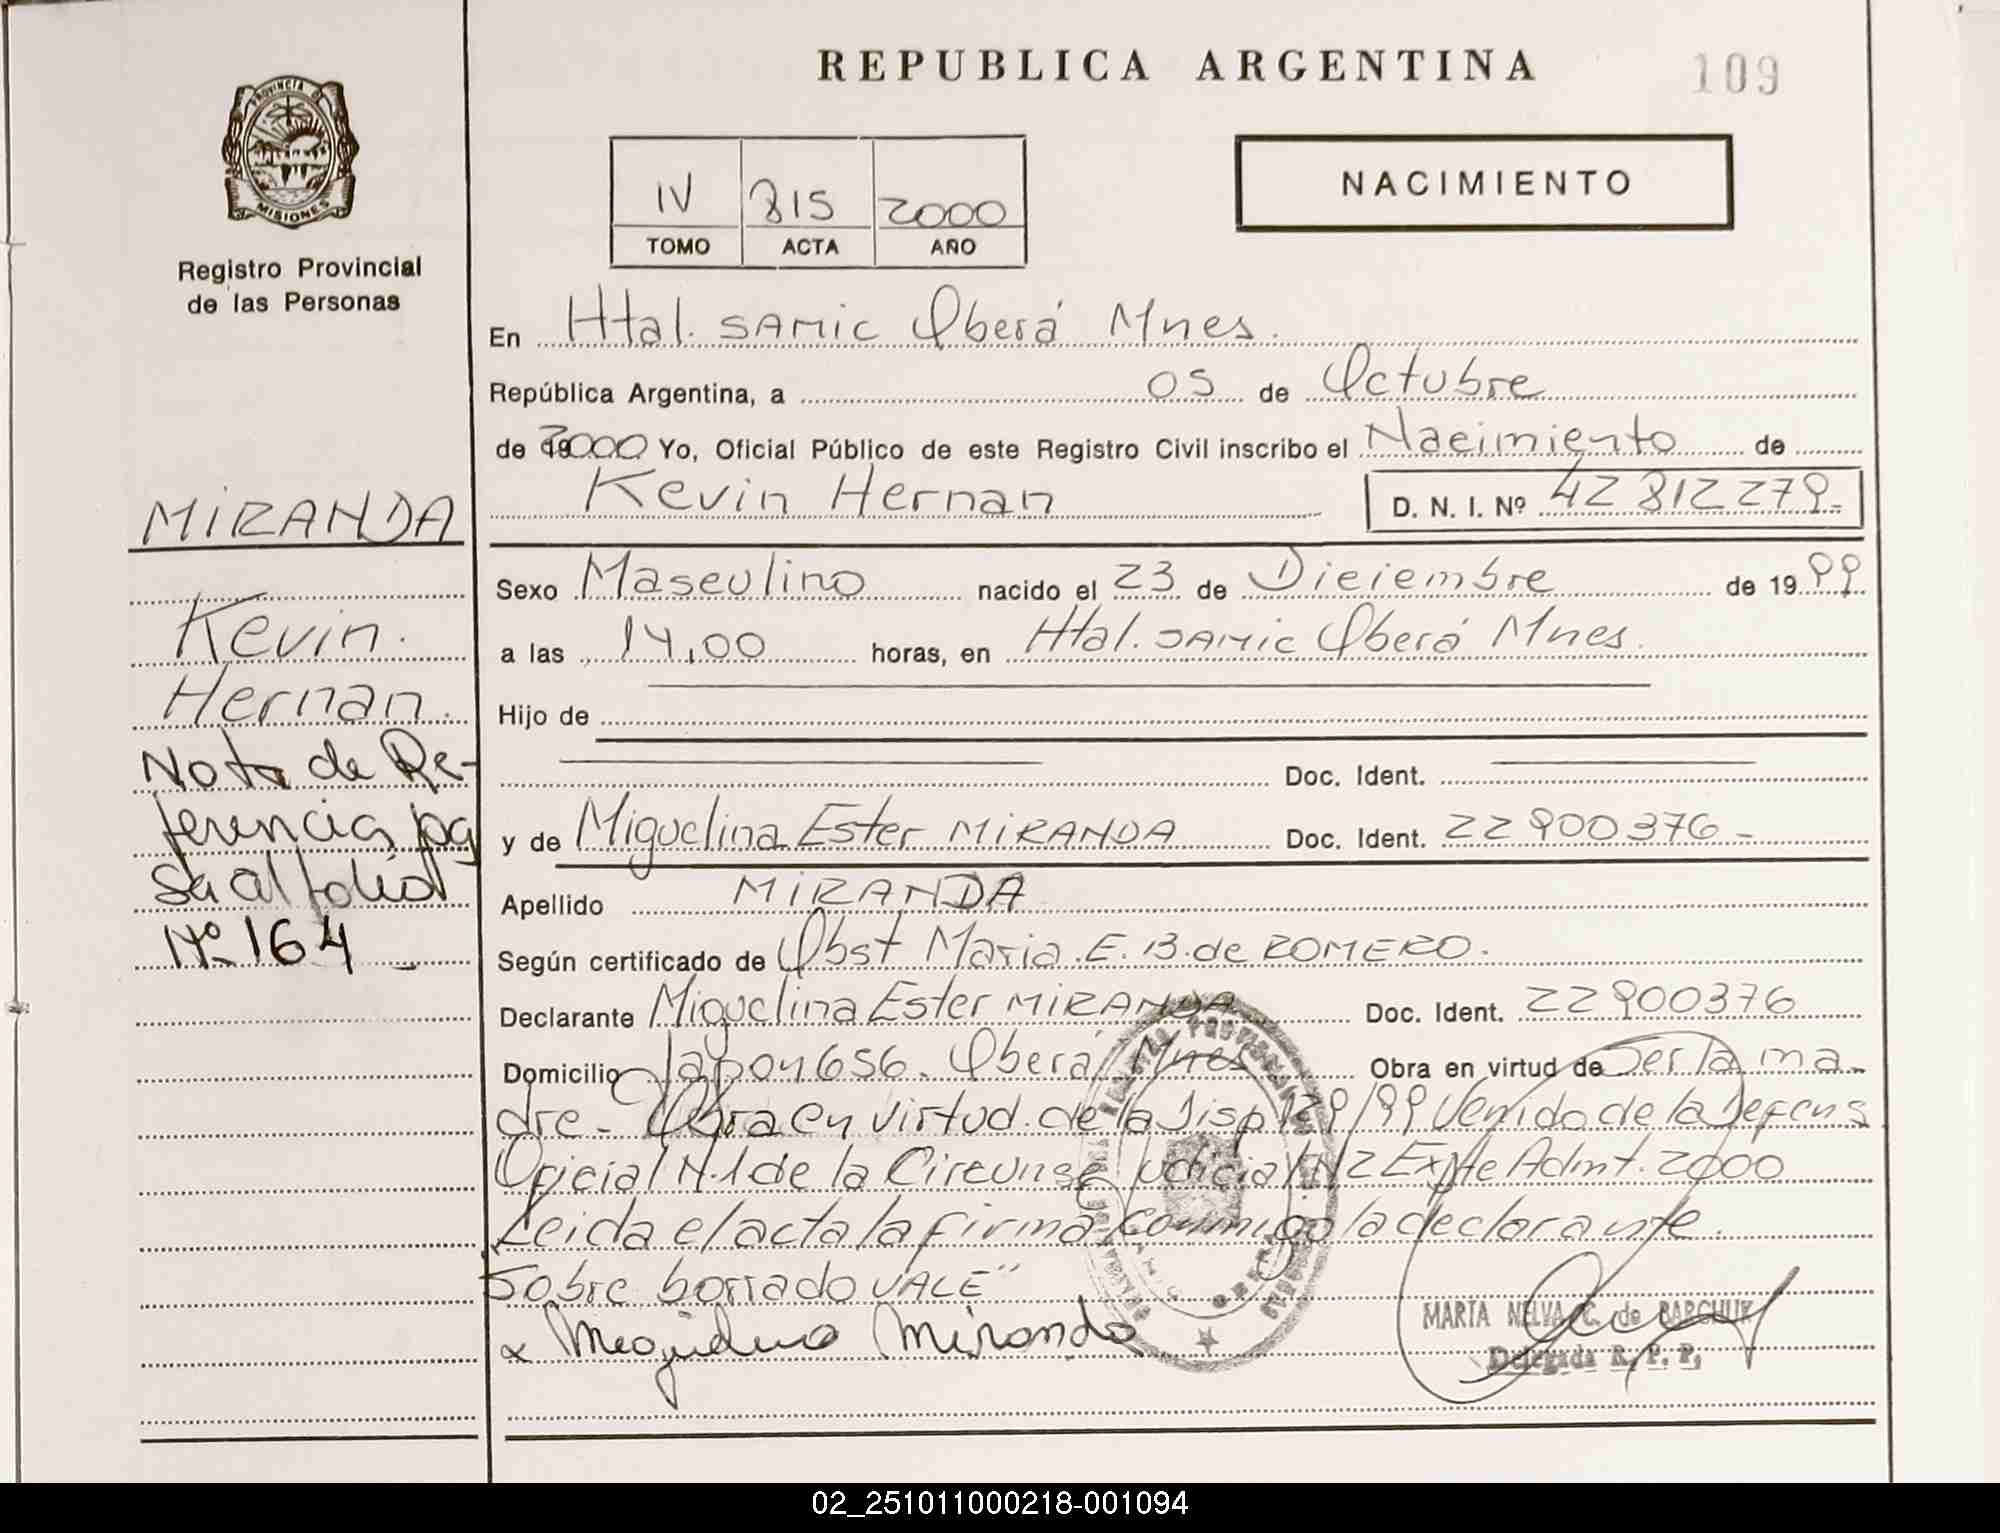 REPUBLICA ARGENTINA
109
PROVINCIA DE
MISIONES
Registro Provincial
de las Personas
IV 815 2000
TOMO ACTA AÑO
NACIMIENTO
En Htal. SAMIC Oberá Mnes.
República Argentina, a 05 de Octubre
de 2000 Yo, Oficial Público de este Registro Civil inscribo el Nacimiento de
Kevin Hernan D. N. I. Nº 42 812 279.-
Sexo Masculino nacido el 23 de Diciembre de 19 99
a las 14,00 horas, en Htal. SAMIC Oberá Mnes.
Hijo de
Doc. Ident.
y de Miguelina Ester MIRANDA Doc. Ident. 22 900 376 -
Apellido MIRANDA
Según certificado de Obst Maria E. B. de ROMERO.
Declarante Miguelina Ester MIRANDA Doc. Ident. 22 900 376
Domicilio Japon 656. Oberá Mnes Obra en virtud de Ser la ma-
dre - Obra en virtud de la Disp 129/99 Venido de la Defens
Oficial N.1 de la Circunsc Judicial N2 Expte Admt. 2000
Leida el acta la firma conmigo la declarante.
Sobre borrado VALE"
Miranda
MARIA NELVA C. de BARCHUK
Delegada R. P. P.
MIRANDA
Kevin.
Hernan.
Nota de Re-
ferencia pa
sa al folio
Nº 164
02_251011000218-001094